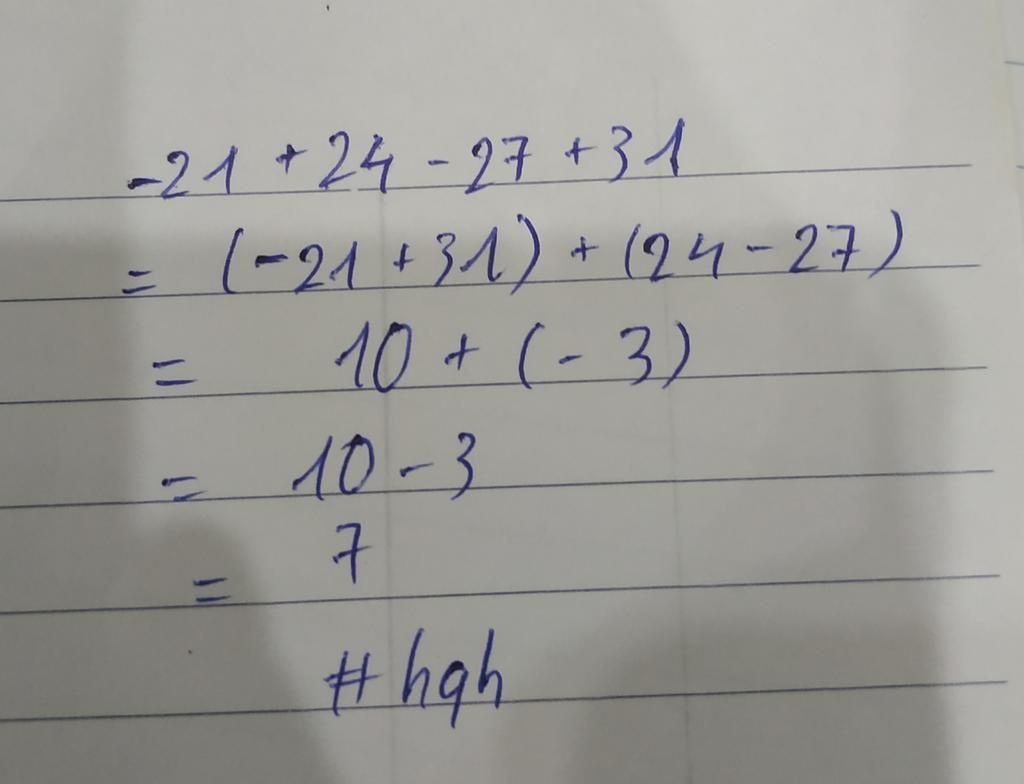 -21 + 24 - 27 + 31
= (-21 + 31) + (24 - 27)
= 10 + (- 3)
= 10 - 3
= 7
# hqh